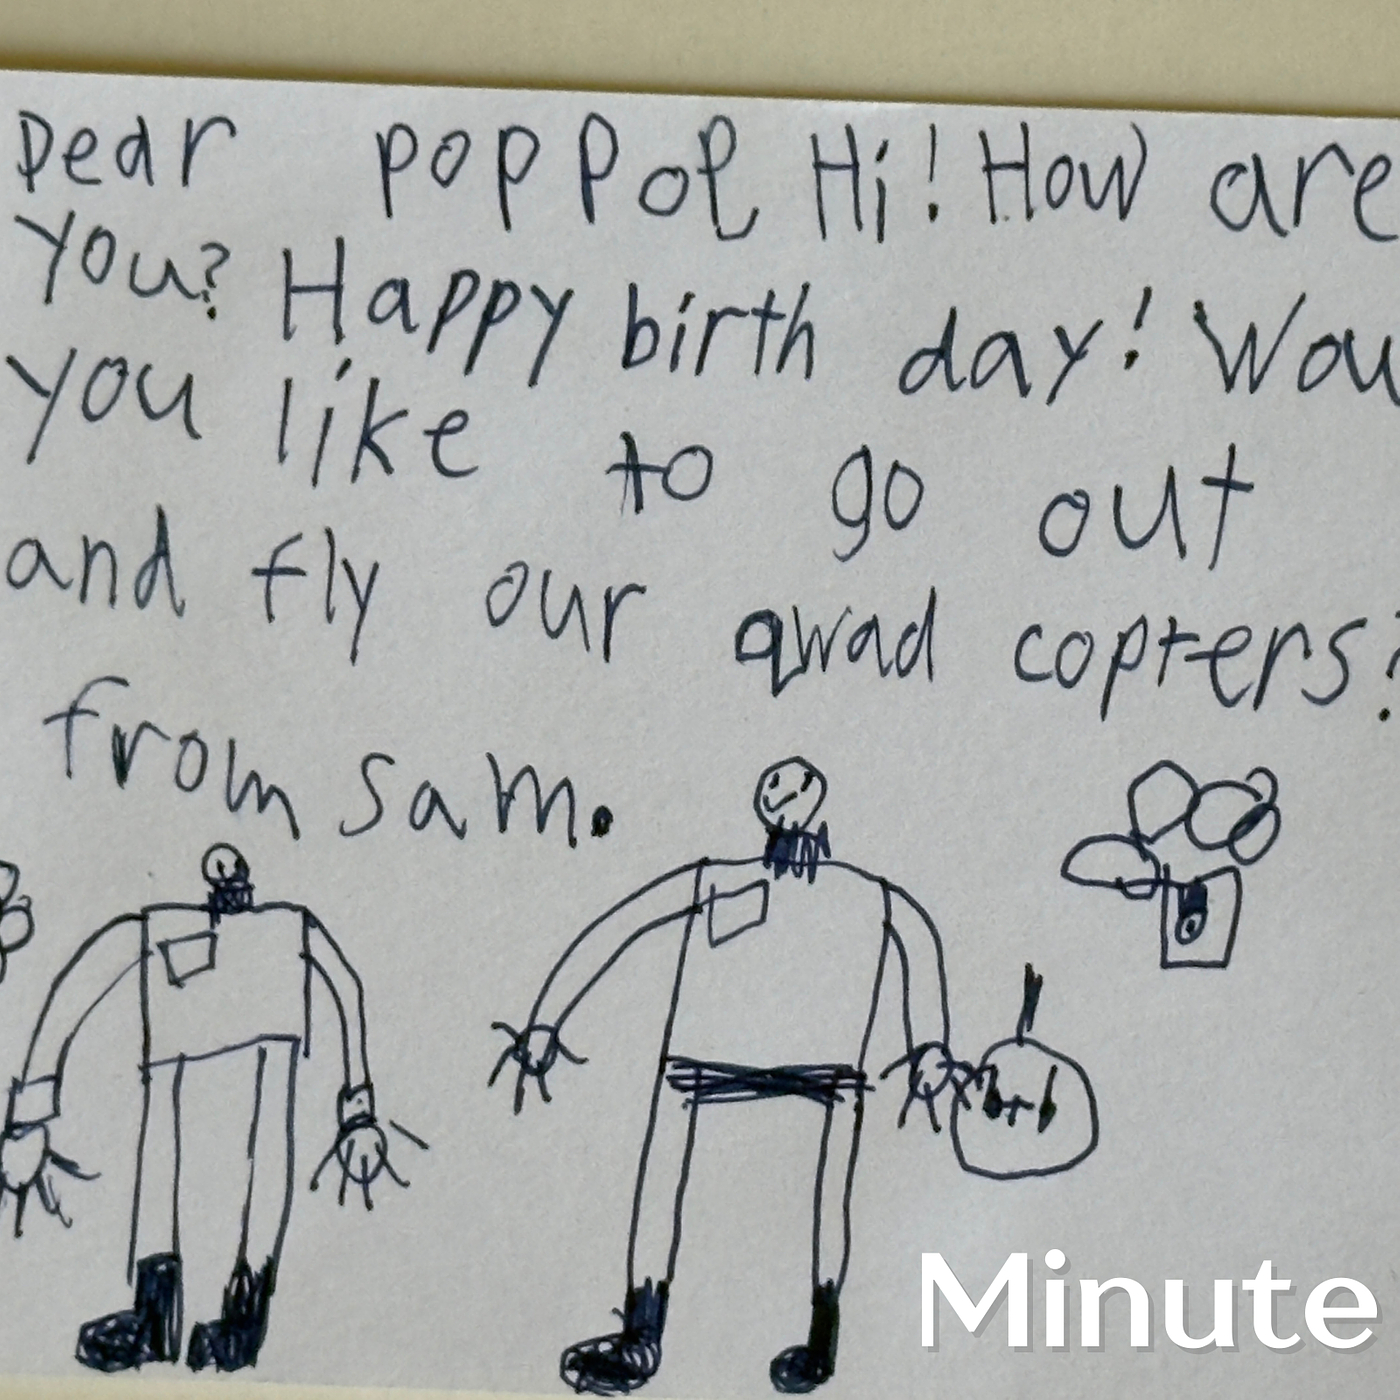 Dear pop pop Hi! How are
you? Happy birth day! Wou
you like to go out
and fly our qwad copters?
from sam.
Minute